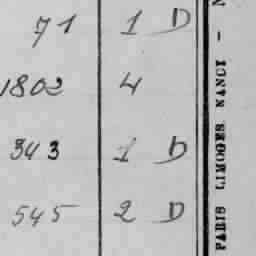 71 1 D
1802 4
343 1 D
545 2 D
PARIS LIMOGES NANCY -